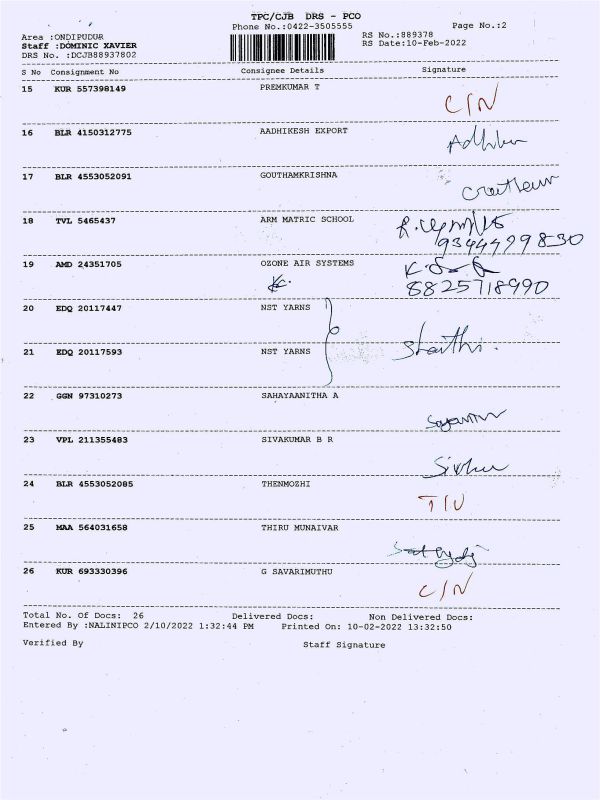 TPC/CJB DRS - PCO
Phone No.:0422-3505555
Page No.:2
Area :ONDIPUDUR
RS No.:889378
Staff :DOMINIC XAVIER
RS Date:10-Feb-2022
DRS No. :DCJB88937802
S No Consignment No Consignee Details Signature
15 KUR 557398149 PREMKUMAR T
C/N
16 BLR 4150312775 AADHIKESH EXPORT
17 BLR 4553052091 GOUTHAMKRISHNA
18 TVL 5465437 ARM MATRIC SCHOOL
9344499830
19 AMD 24351705 OZONE AIR SYSTEMS
8825718990
20 EDQ 20117447 NST YARNS
21 EDQ 20117593 NST YARNS
22 GGN 97310273 SAHAYAANITHA A
23 VPL 211355483 SIVAKUMAR B R
24 BLR 4553052085 THENMOZHI
25 MAA 564031658 THIRU MUNAIVAR
26 KUR 693330396 G SAVARIMUTHU
C/N
Total No. Of Docs: 26 Delivered Docs: Non Delivered Docs:
Entered By :NALINIPCO 2/10/2022 1:32:44 PM Printed On: 10-02-2022 13:32:50
Verified By Staff Signature